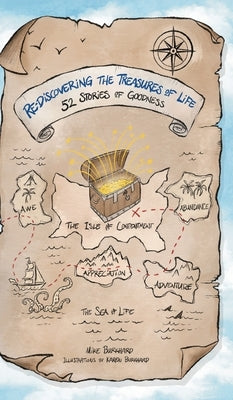 Re-Discovering the Treasures of Life
52 Stories of Goodness
Awe
Abundance
The Isle of Contentment
Appreciation
Adventure
The Sea of Life
Mike Burkhard
Illustrations by Karen Burkhard